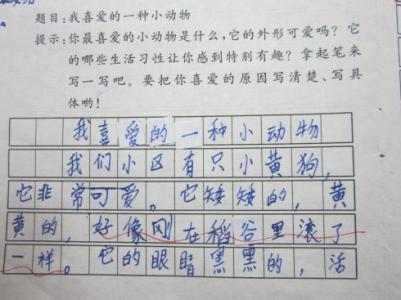 题目:我喜爱的一种小动物
提示:你最喜爱的小动物是什么,它的外形可爱吗?它
的哪些生活习性让你感到特别有趣?拿起笔来
写一写吧。要把你喜爱的原因写清楚、写具
体哟!
我喜爱的一种小动物
我们小区有只小黄狗,
它非常可爱。它矮矮的,黄
黄的,好像刚在稻谷里滚了
一样。它的眼睛黑黑的,活